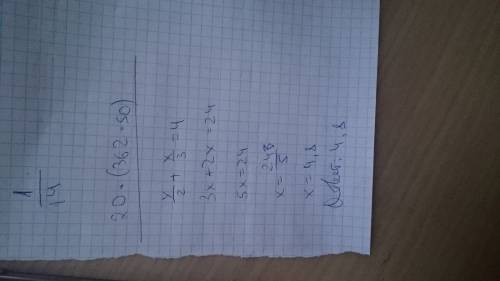 1/14
20 · (362 - 50)
x/2 + x/3 = 4
3x + 2x = 24
5x = 24
x = 24/5
x = 4,8
Ответ: 4,8